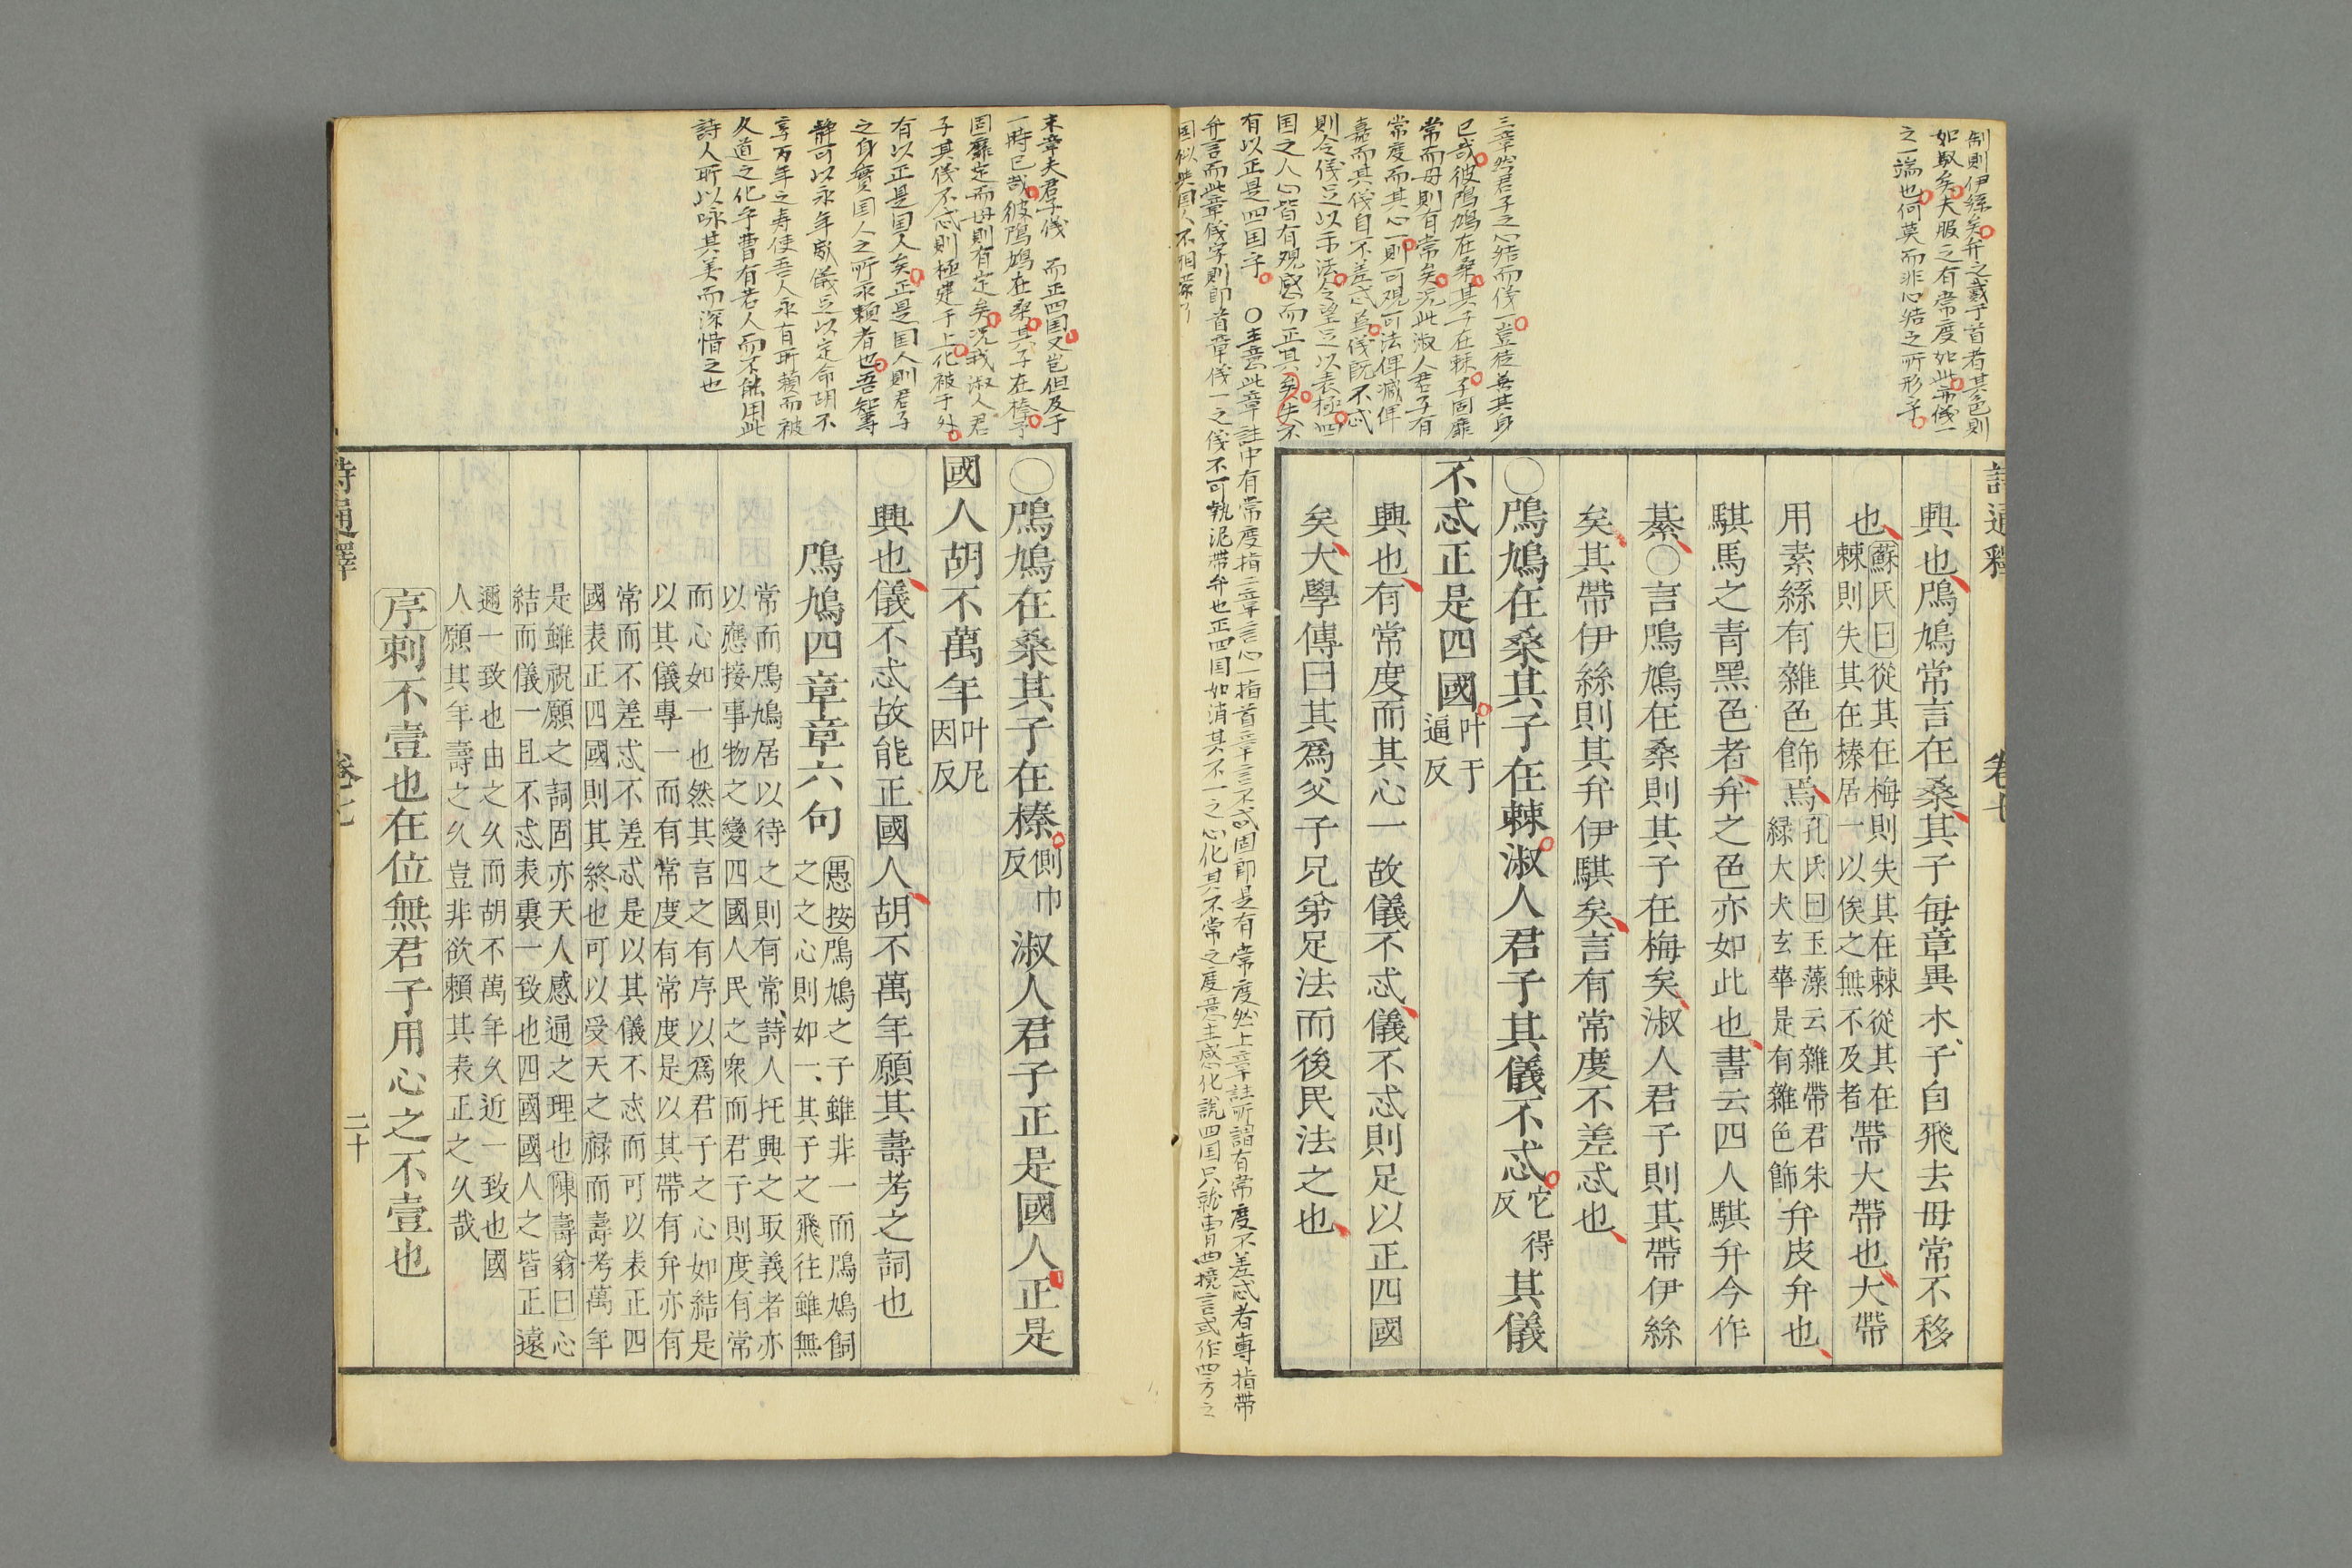 制則伊絲矣弁之戴于首者其色則
如騏矣夫服之有常度如此亦儀一
之一端也何莫而非心結之所形乎
三章然君子之心結而儀一豈徒善其身
已哉彼鳲鳩在桑其子在棘子固靡
常而母則有常矣况此淑人君子有
常度而其心一則可观可法俾臧俾
嘉而其儀自不差忒焉儀既不忒
則令儀足以示法令望足以表極四
国之人心皆有观感而正其矣失不
有以正是四国乎 ○主意此章註中有常度指二章言心一指首章言不忒固即是有常度然上章註所謂有常度不差忒者專指帶
弁言而此章儀字則即首章儀一之儀不可執泥帶弁也正四国如消其不一之心化其不常之度意主感化說四国只就曹四境言或作四方之
国似與国人不相蒙
詩通釋 卷七
興也鳲鳩常言在桑其子每章異木子自飛去母常不移
也蘇氏曰從其在梅則失其在棘從其在
棘則失其在榛居一以俟之無不及者帶大帶也大帶
用素絲有雜色飾焉孔氏曰玉藻云雜帶君朱
綠大夫玄華是有雜色飾弁皮弁也
騏馬之青黑色者弁之色亦如此也書云四人騏弁今作
綦○言鳲鳩在桑則其子在梅矣淑人君子則其帶伊絲
矣其帶伊絲則其弁伊騏矣言有常度不差忒也
○鳲鳩在桑其子在棘淑人君子其儀不忒它得反其儀
不忒正是四國叶于逼反
興也有常度而其心一故儀不忒儀不忒則足以正四國
矣大學傳曰其爲父子兄弟足法而後民法之也
末章夫君子儀 而正四国又豈但及于
一時已哉彼鳲鳩在桑其子在榛子
固靡定而母則有定矣况我淑人君
子其儀不忒則極建于上化被于外
有以正是国人矣正是国人則君子
之身實国人之所永賴者也吾智壽
靜可以永年威儀足以定命胡不
享万年之寿使吾人永有所賴而被
久道之化乎曹有若人而不能用此
詩人所以咏其美而深惜之也
○鳲鳩在桑其子在榛側巾反淑人君子正是國人正是
國人胡不萬年叶尼因反
興也儀不忒故能正國人胡不萬年願其壽考之詞也
鳲鳩四章章六句愚按鳲鳩之子雖非一而鳲鳩飼
之之心則如一其子之飛往雖無
常而鳲鳩居以待之則有常詩人托興之取義者亦
以應接事物之變四國人民之衆而君子則度有常
而心如一也然其言之有序以爲君子之心如結是
以其儀專一而有常度有常度是以其帶有弁亦有
常而不差忒不差忒是以其儀不忒而可以表正四
國表正四國則其終也可以受天之祿而壽考萬年
是雖祝願之詞固亦天人感通之理也陳壽翁曰心
結而儀一且不忒表裏一致也四國國人之皆正遠
邇一致也由之久而胡不萬年久近一致也國
人願其年壽之久豈非欲賴其表正之久哉
序刺不壹也在位無君子用心之不壹也
詩通釋 卷七 二十